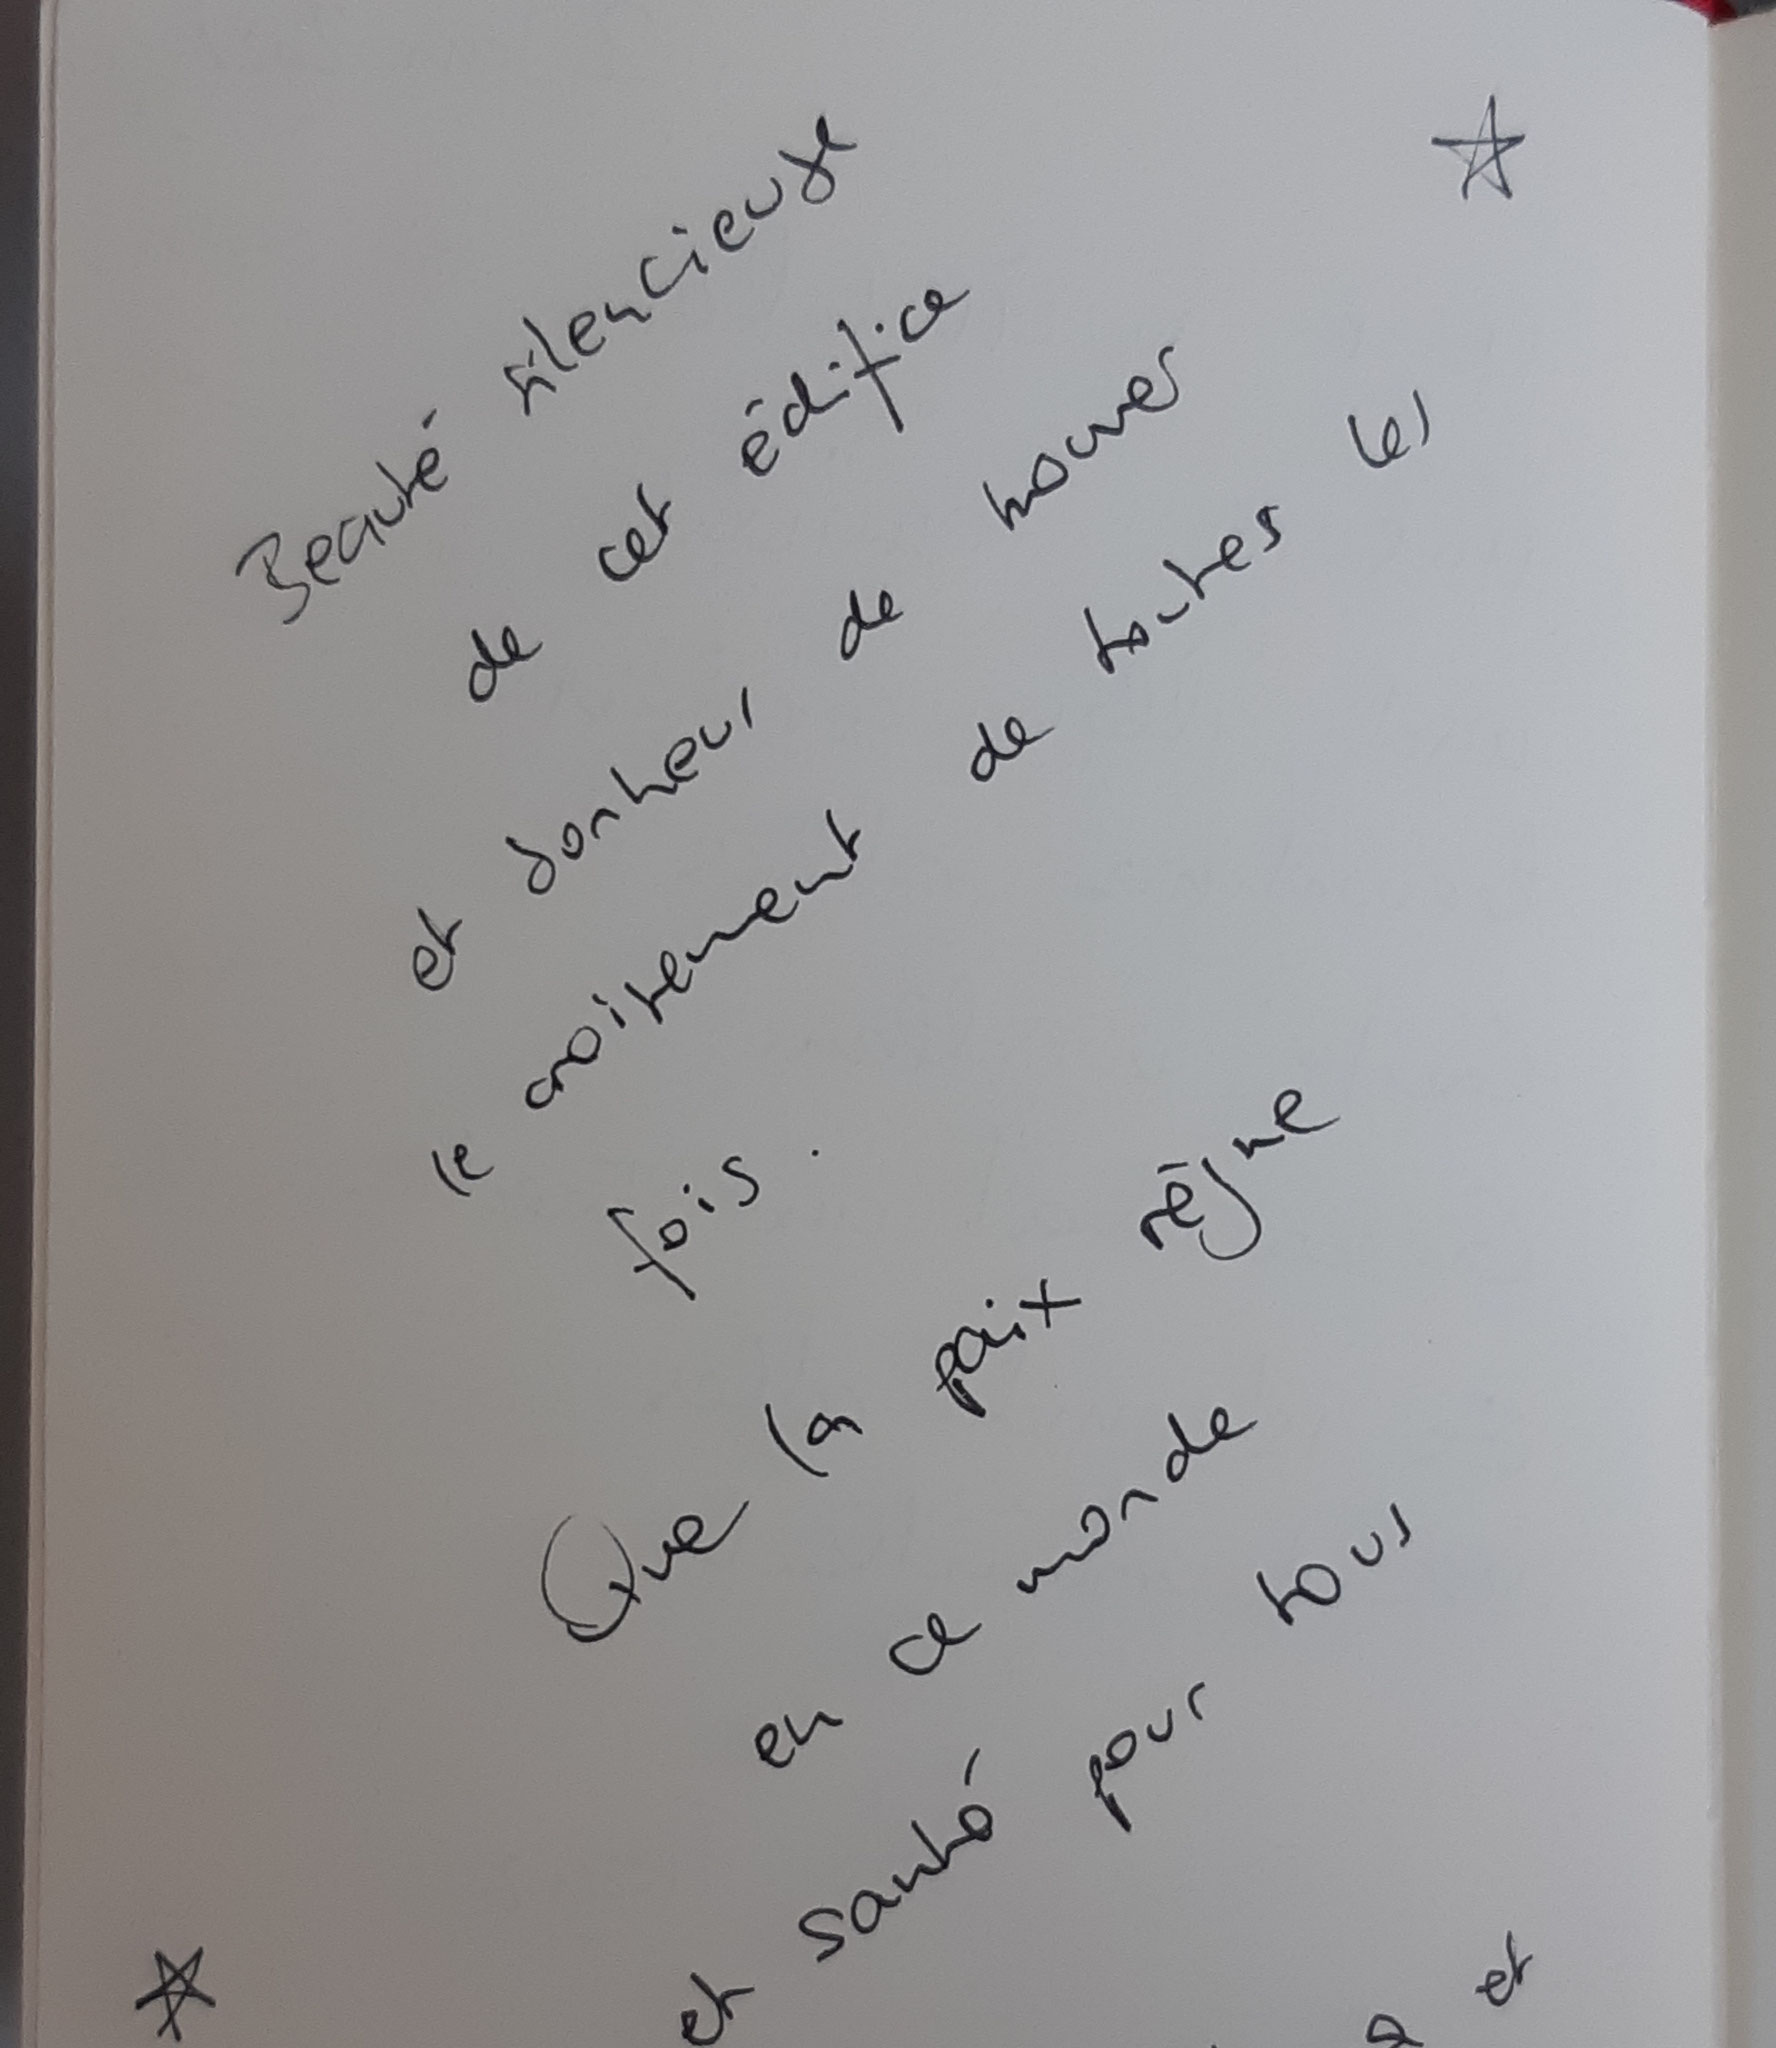 Beauté silencieuse
de cet édifice
et bonheur de
le croisement de toutes les
fois.
Que la paix règne
en ce monde
et santé pour tous
et